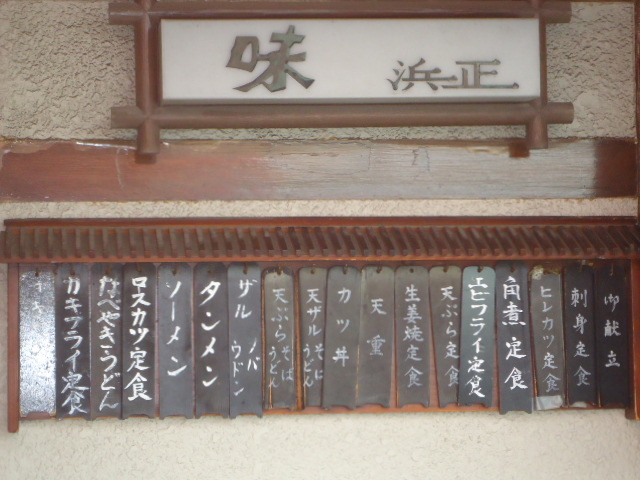 味 正浜
御献立
刺身定食
ヒレカツ定食
角煮定食
エビフライ定食
天ぷら定食
生姜焼定食
天重
カツ丼
天ザル そば うどん
天ぷら そば うどん
ザル ソバ ウドン
タンメン
ソーメン
ロスカツ定食
なべやきうどん
カキフライ定食